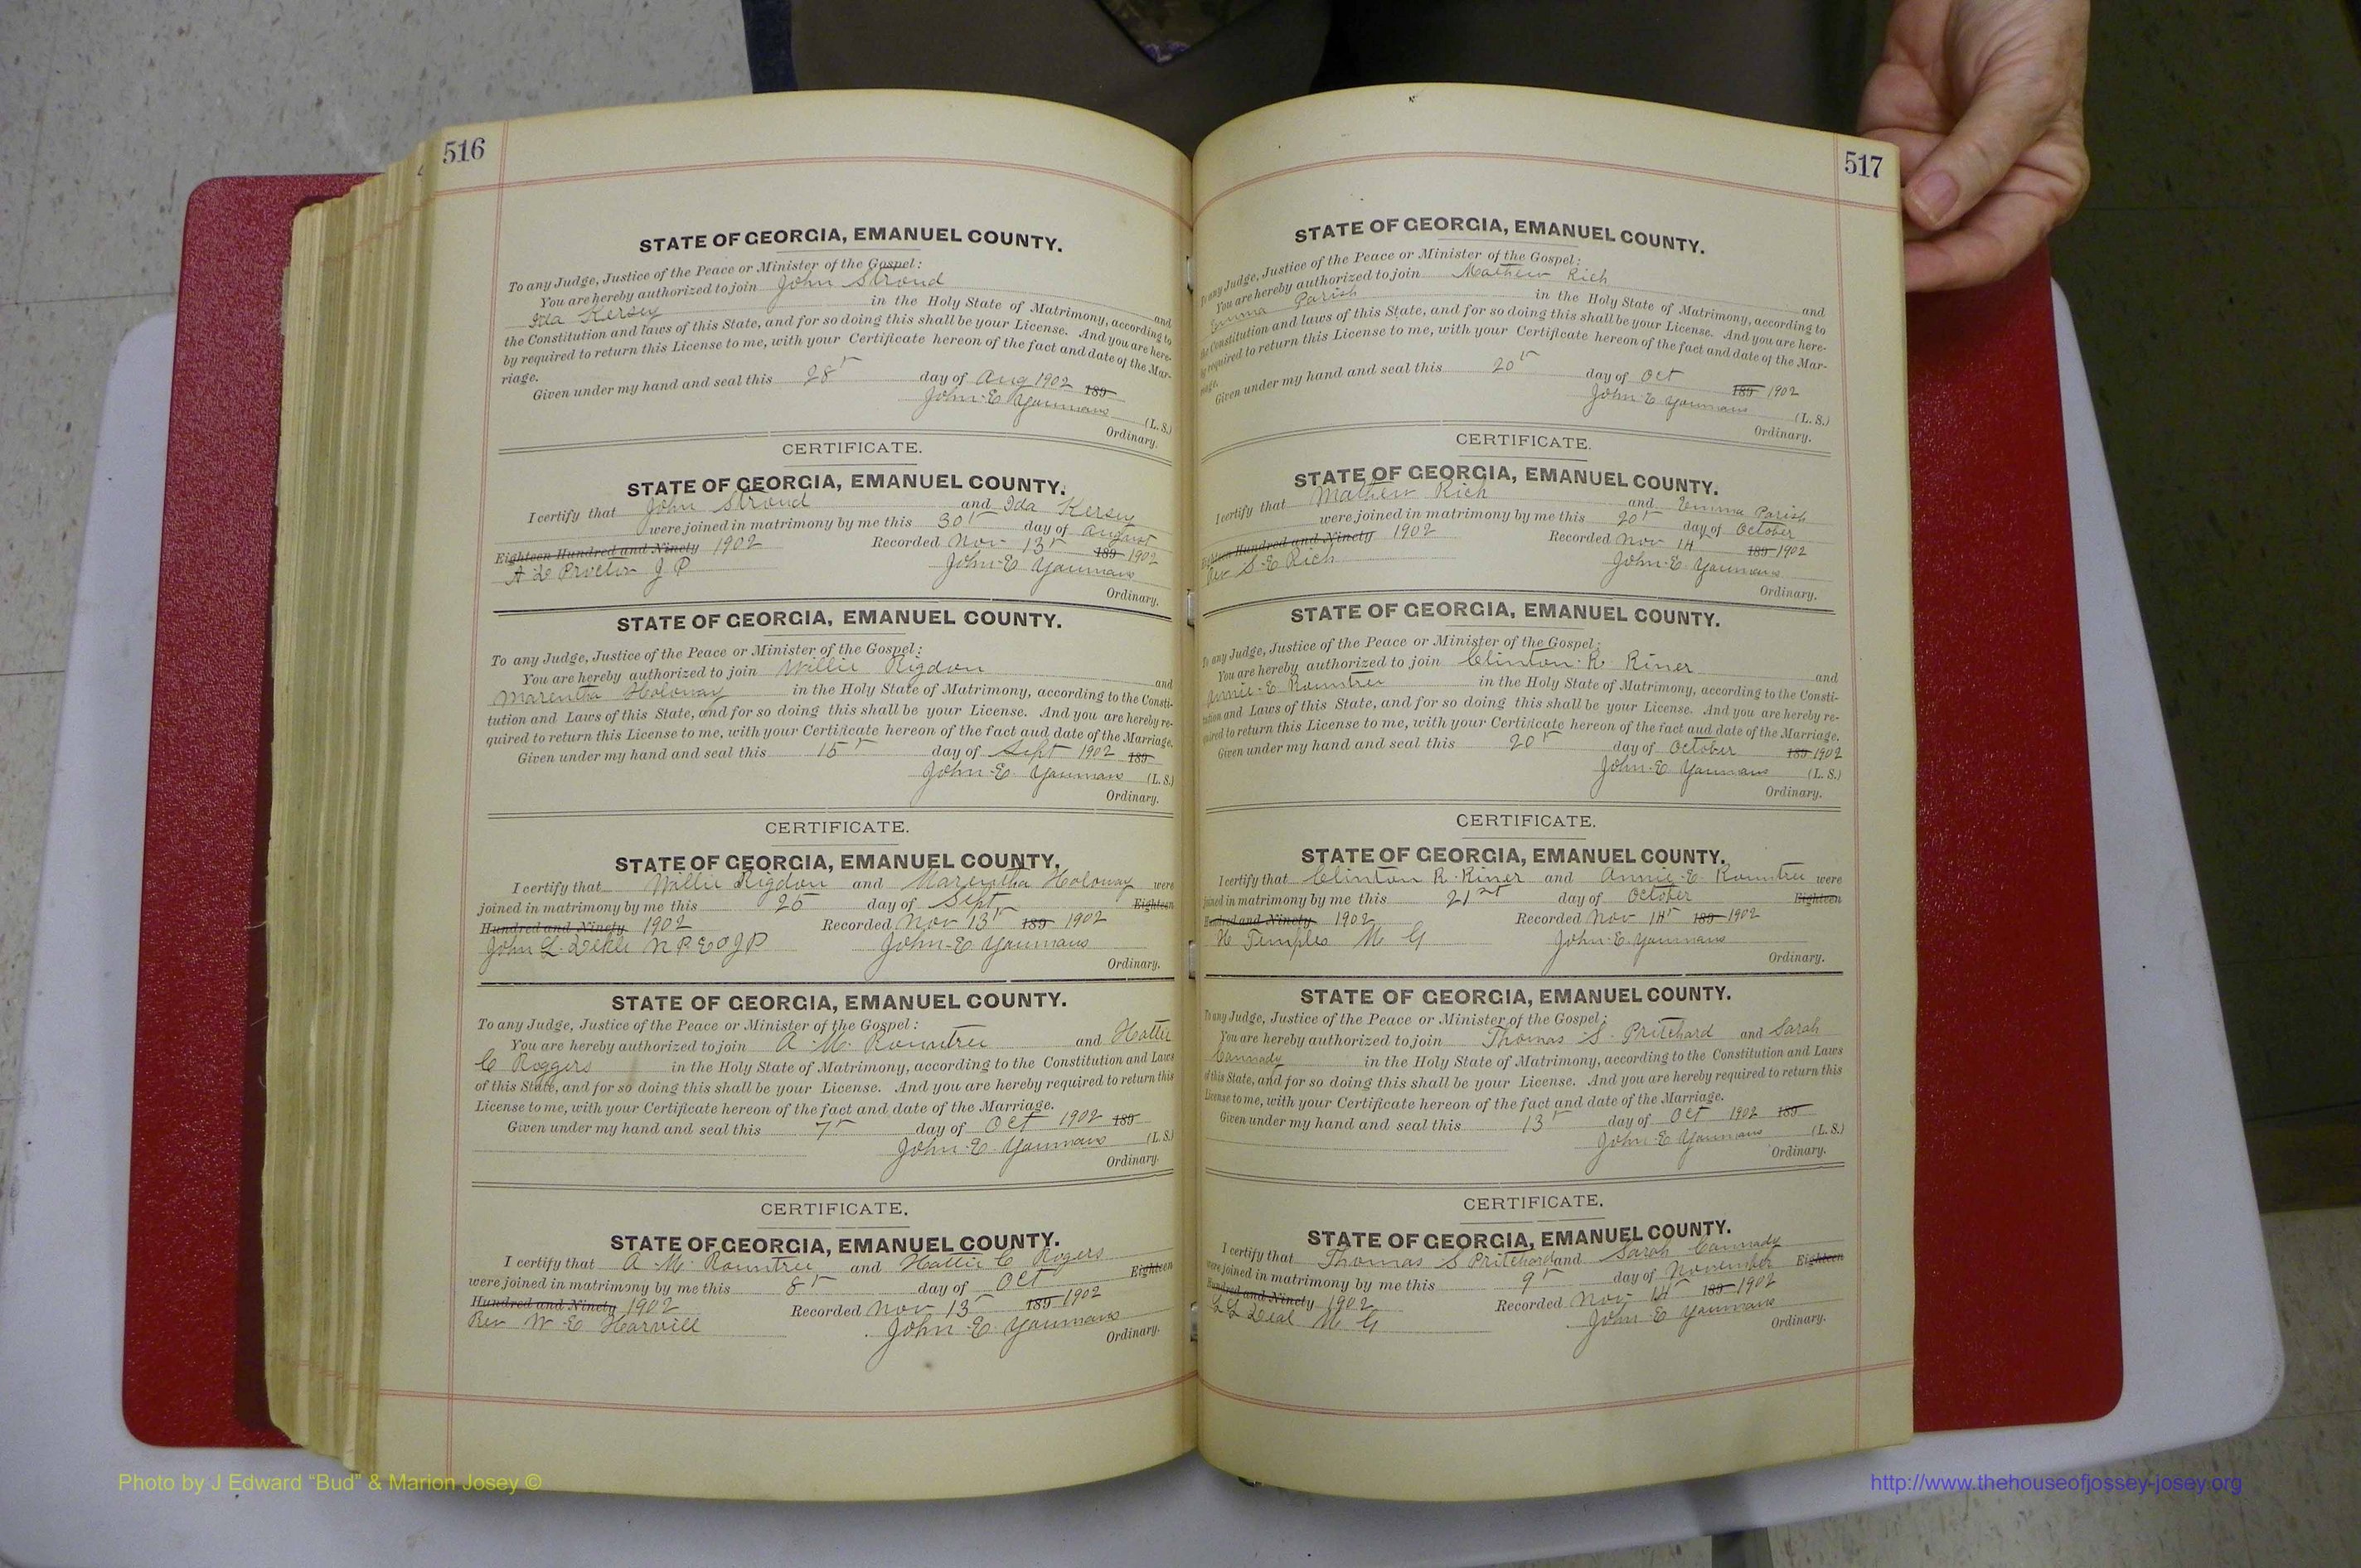 516
STATE OF GEORGIA, EMANUEL COUNTY.
To any Judge, Justice of the Peace or Minister of the Gospel:
You are hereby authorized to join John Stroud and
Ida Kersey in the Holy State of Matrimony, according to
the Constitution and laws of this State, and for so doing this shall be your License. And you are here-
by required to return this License to me, with your Certificate hereon of the fact and date of the Mar-
riage.
Given under my hand and seal this 28th day of Aug 1902 189
John E Youmans (L. S.)
Ordinary.
CERTIFICATE.
STATE OF GEORGIA, EMANUEL COUNTY.
I certify that John Stroud and Ida Kersey
were joined in matrimony by me this 30th day of August
Eighteen Hundred and Ninety 1902 Recorded Nov 13th 189 1902
Proctor J P John E Youmans
Ordinary.
STATE OF GEORGIA, EMANUEL COUNTY.
To any Judge, Justice of the Peace or Minister of the Gospel:
You are hereby authorized to join Willie Rigdon and
Marentha Holoway in the Holy State of Matrimony, according to the Consti-
tution and Laws of this State, and for so doing this shall be your License. And you are hereby re-
quired to return this License to me, with your Certificate hereon of the fact and date of the Marriage.
Given under my hand and seal this 15th day of Sept 1902 189
John E. Youmans (L. S.)
Ordinary.
CERTIFICATE.
STATE OF GEORGIA, EMANUEL COUNTY.
I certify that Willie Rigdon and Marentha Holoway were
joined in matrimony by me this day of Sept Eighteen
Hundred and Ninety 1902 Recorded Nov 13th 189 1902
John John E Youmans
Ordinary.
STATE OF GEORGIA, EMANUEL COUNTY.
To any Judge, Justice of the Peace or Minister of the Gospel:
You are hereby authorized to join A. M. Rountree and Hattie
C Roggers in the Holy State of Matrimony, according to the Constitution and Laws
of this State, and for so doing this shall be your License. And you are hereby required to return this
License to me, with your Certificate hereon of the fact and date of the Marriage.
Given under my hand and seal this 7th day of Oct 1902 189
John E. Youmans (L. S.)
Ordinary.
CERTIFICATE.
STATE OF GEORGIA, EMANUEL COUNTY.
I certify that A. M. Rountree and Hattie C Rogers
were joined in matrimony by me this 8th day of Oct Eighteen
Hundred and Ninety 1902 Recorded Nov 13th 189 1902
Rev W E Harvill John E. Youmans
Ordinary.
517
STATE OF GEORGIA, EMANUEL COUNTY.
To any Judge, Justice of the Peace or Minister of the Gospel:
You are hereby authorized to join Mathew Rich and
Emma Parish in the Holy State of Matrimony, according to
the Constitution and laws of this State, and for so doing this shall be your License. And you are here-
by required to return this License to me, with your Certificate hereon of the fact and date of the Mar-
riage.
Given under my hand and seal this 20th day of Oct 189 1902
John E Youmans (L. S.)
Ordinary.
CERTIFICATE.
STATE OF GEORGIA, EMANUEL COUNTY.
I certify that Mathew Rich and Emma Parish
were joined in matrimony by me this 20th day of October
Eighteen Hundred and Ninety 1902 Recorded Nov 14 189 1902
Rev S. E Rich John E Youmans
Ordinary.
STATE OF GEORGIA, EMANUEL COUNTY.
To any Judge, Justice of the Peace or Minister of the Gospel:
You are hereby authorized to join Clinton R. Riner and
Annie E Rountree in the Holy State of Matrimony, according to the Consti-
tution and Laws of this State, and for so doing this shall be your License. And you are hereby re-
quired to return this License to me, with your Certificate hereon of the fact and date of the Marriage.
Given under my hand and seal this 20th day of October 189 1902
John E Youmans (L. S.)
Ordinary.
CERTIFICATE.
STATE OF GEORGIA, EMANUEL COUNTY.
I certify that Clinton R. Riner and Annie E. Rountree were
joined in matrimony by me this 21st day of October Eighteen
Hundred and Ninety 1902 Recorded Nov 14th 189 1902
Temples M G John E. Youmans
Ordinary.
STATE OF GEORGIA, EMANUEL COUNTY.
To any Judge, Justice of the Peace or Minister of the Gospel:
You are hereby authorized to join Thomas S. Pritchard and Sarah
Cannady in the Holy State of Matrimony, according to the Constitution and Laws
of this State, and for so doing this shall be your License. And you are hereby required to return this
License to me, with your Certificate hereon of the fact and date of the Marriage.
Given under my hand and seal this 13th day of Oct 1902 189
John E Youmans (L. S.)
Ordinary.
CERTIFICATE.
STATE OF GEORGIA, EMANUEL COUNTY.
I certify that Thomas S Pritchard and Sarah Cannady
were joined in matrimony by me this 9th day of November Eighteen
Hundred and Ninety 1902 Recorded Nov 14th 189 1902
Deal M G John E Youmans
Ordinary.
Photo by J Edward “Bud” & Marion Josey ©
http://www.thehouseofjossey-josey.org